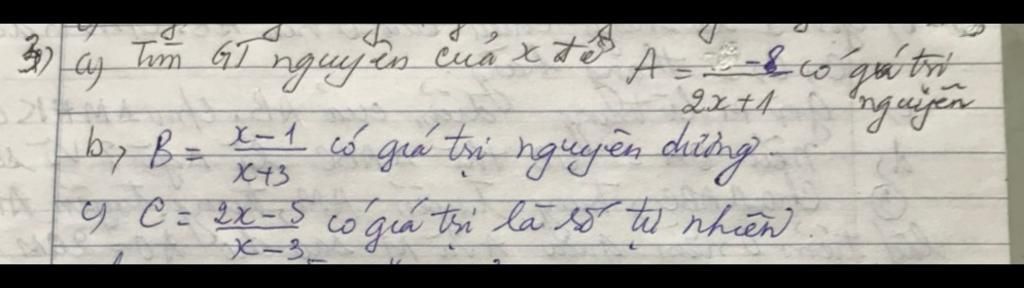 3) a) Tìm GT nguyên của x để A = -8/(2x+1) có giá trị
nguyên
b, B = (x-1)/(x+3) có giá trị nguyên dương.
c, C = (2x-5)/(x-3) có giá trị là số tự nhiên.